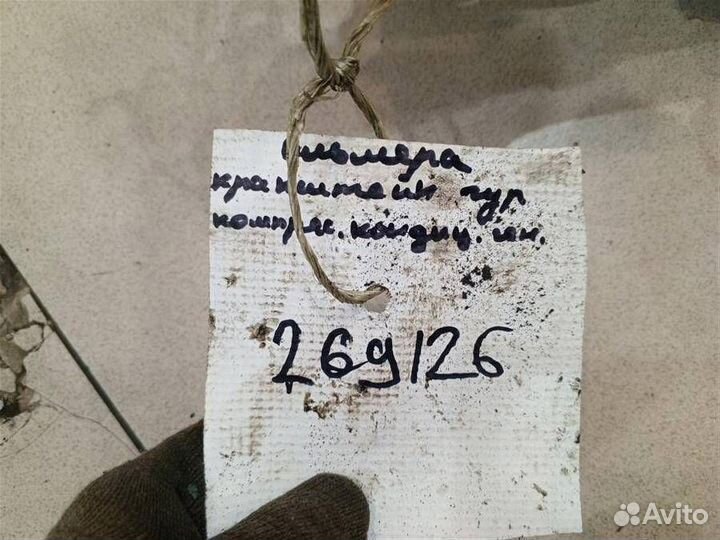 альмера
кронштейн гур
компрес. кондиц.
269126
Avito